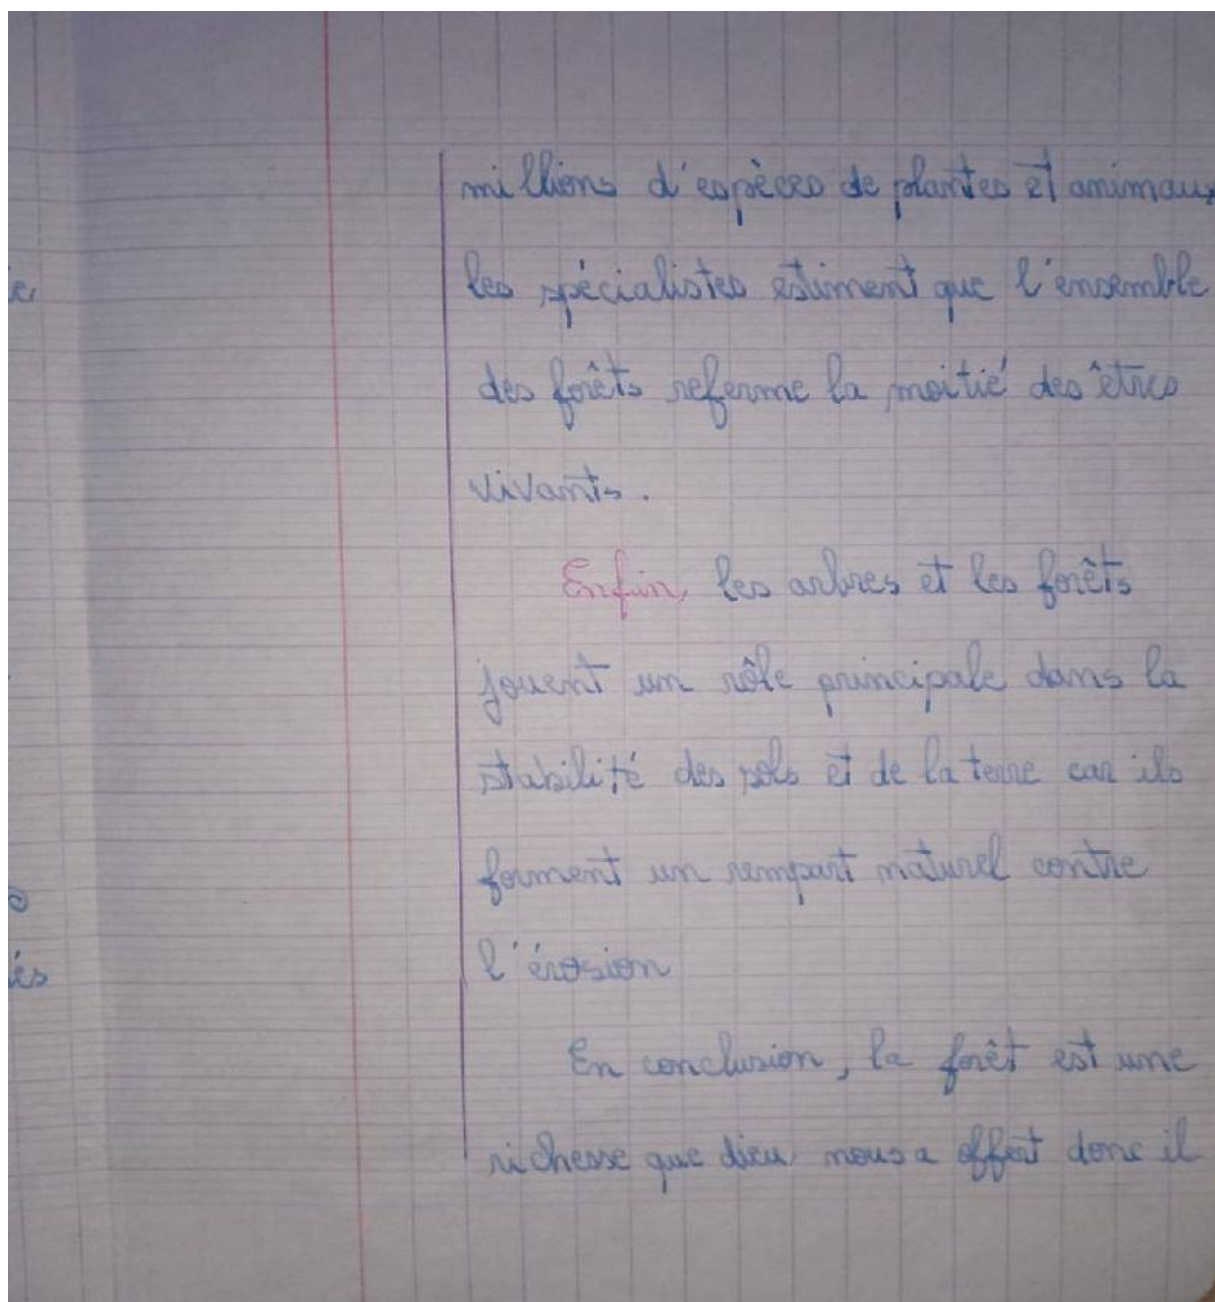 millions d'espèces de plantes et animaux
les spécialistes estiment que l'ensemble
des forêts referme la moitié des êtres
vivants.
Enfin, les arbres et les forêts
jouent un rôle principale dans la
stabilité des sols et de la terre car ils
forment un rempart naturel contre
l'érosion
En conclusion, la forêt est une
richesse que dieu nous a offert donc il